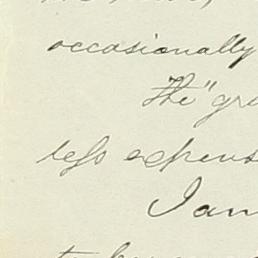 occasionally
The "gra
less expens
Jan